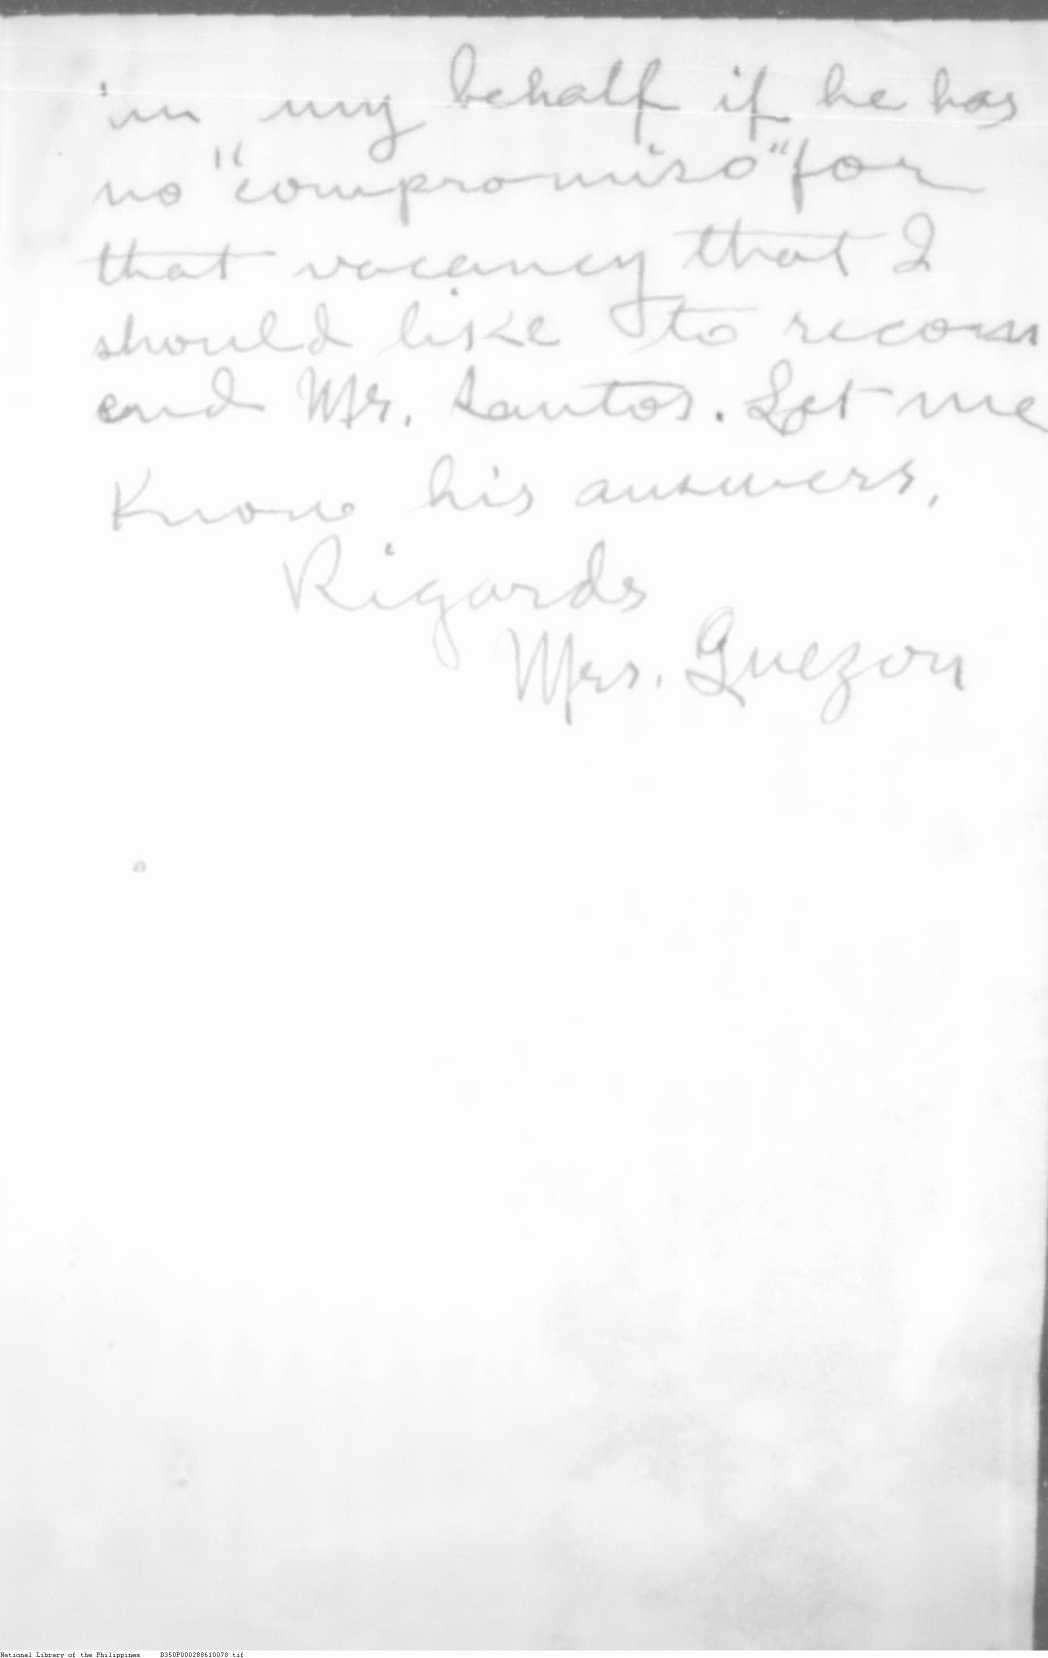 in my behalf if he has
no "compromiso" for
that vacancy that I
should like to recom
end Mr. Santos. Let me
Know his answers,
Rigards
Mrs. Quezon
National Library of the Philippines D350P000288610078.tif